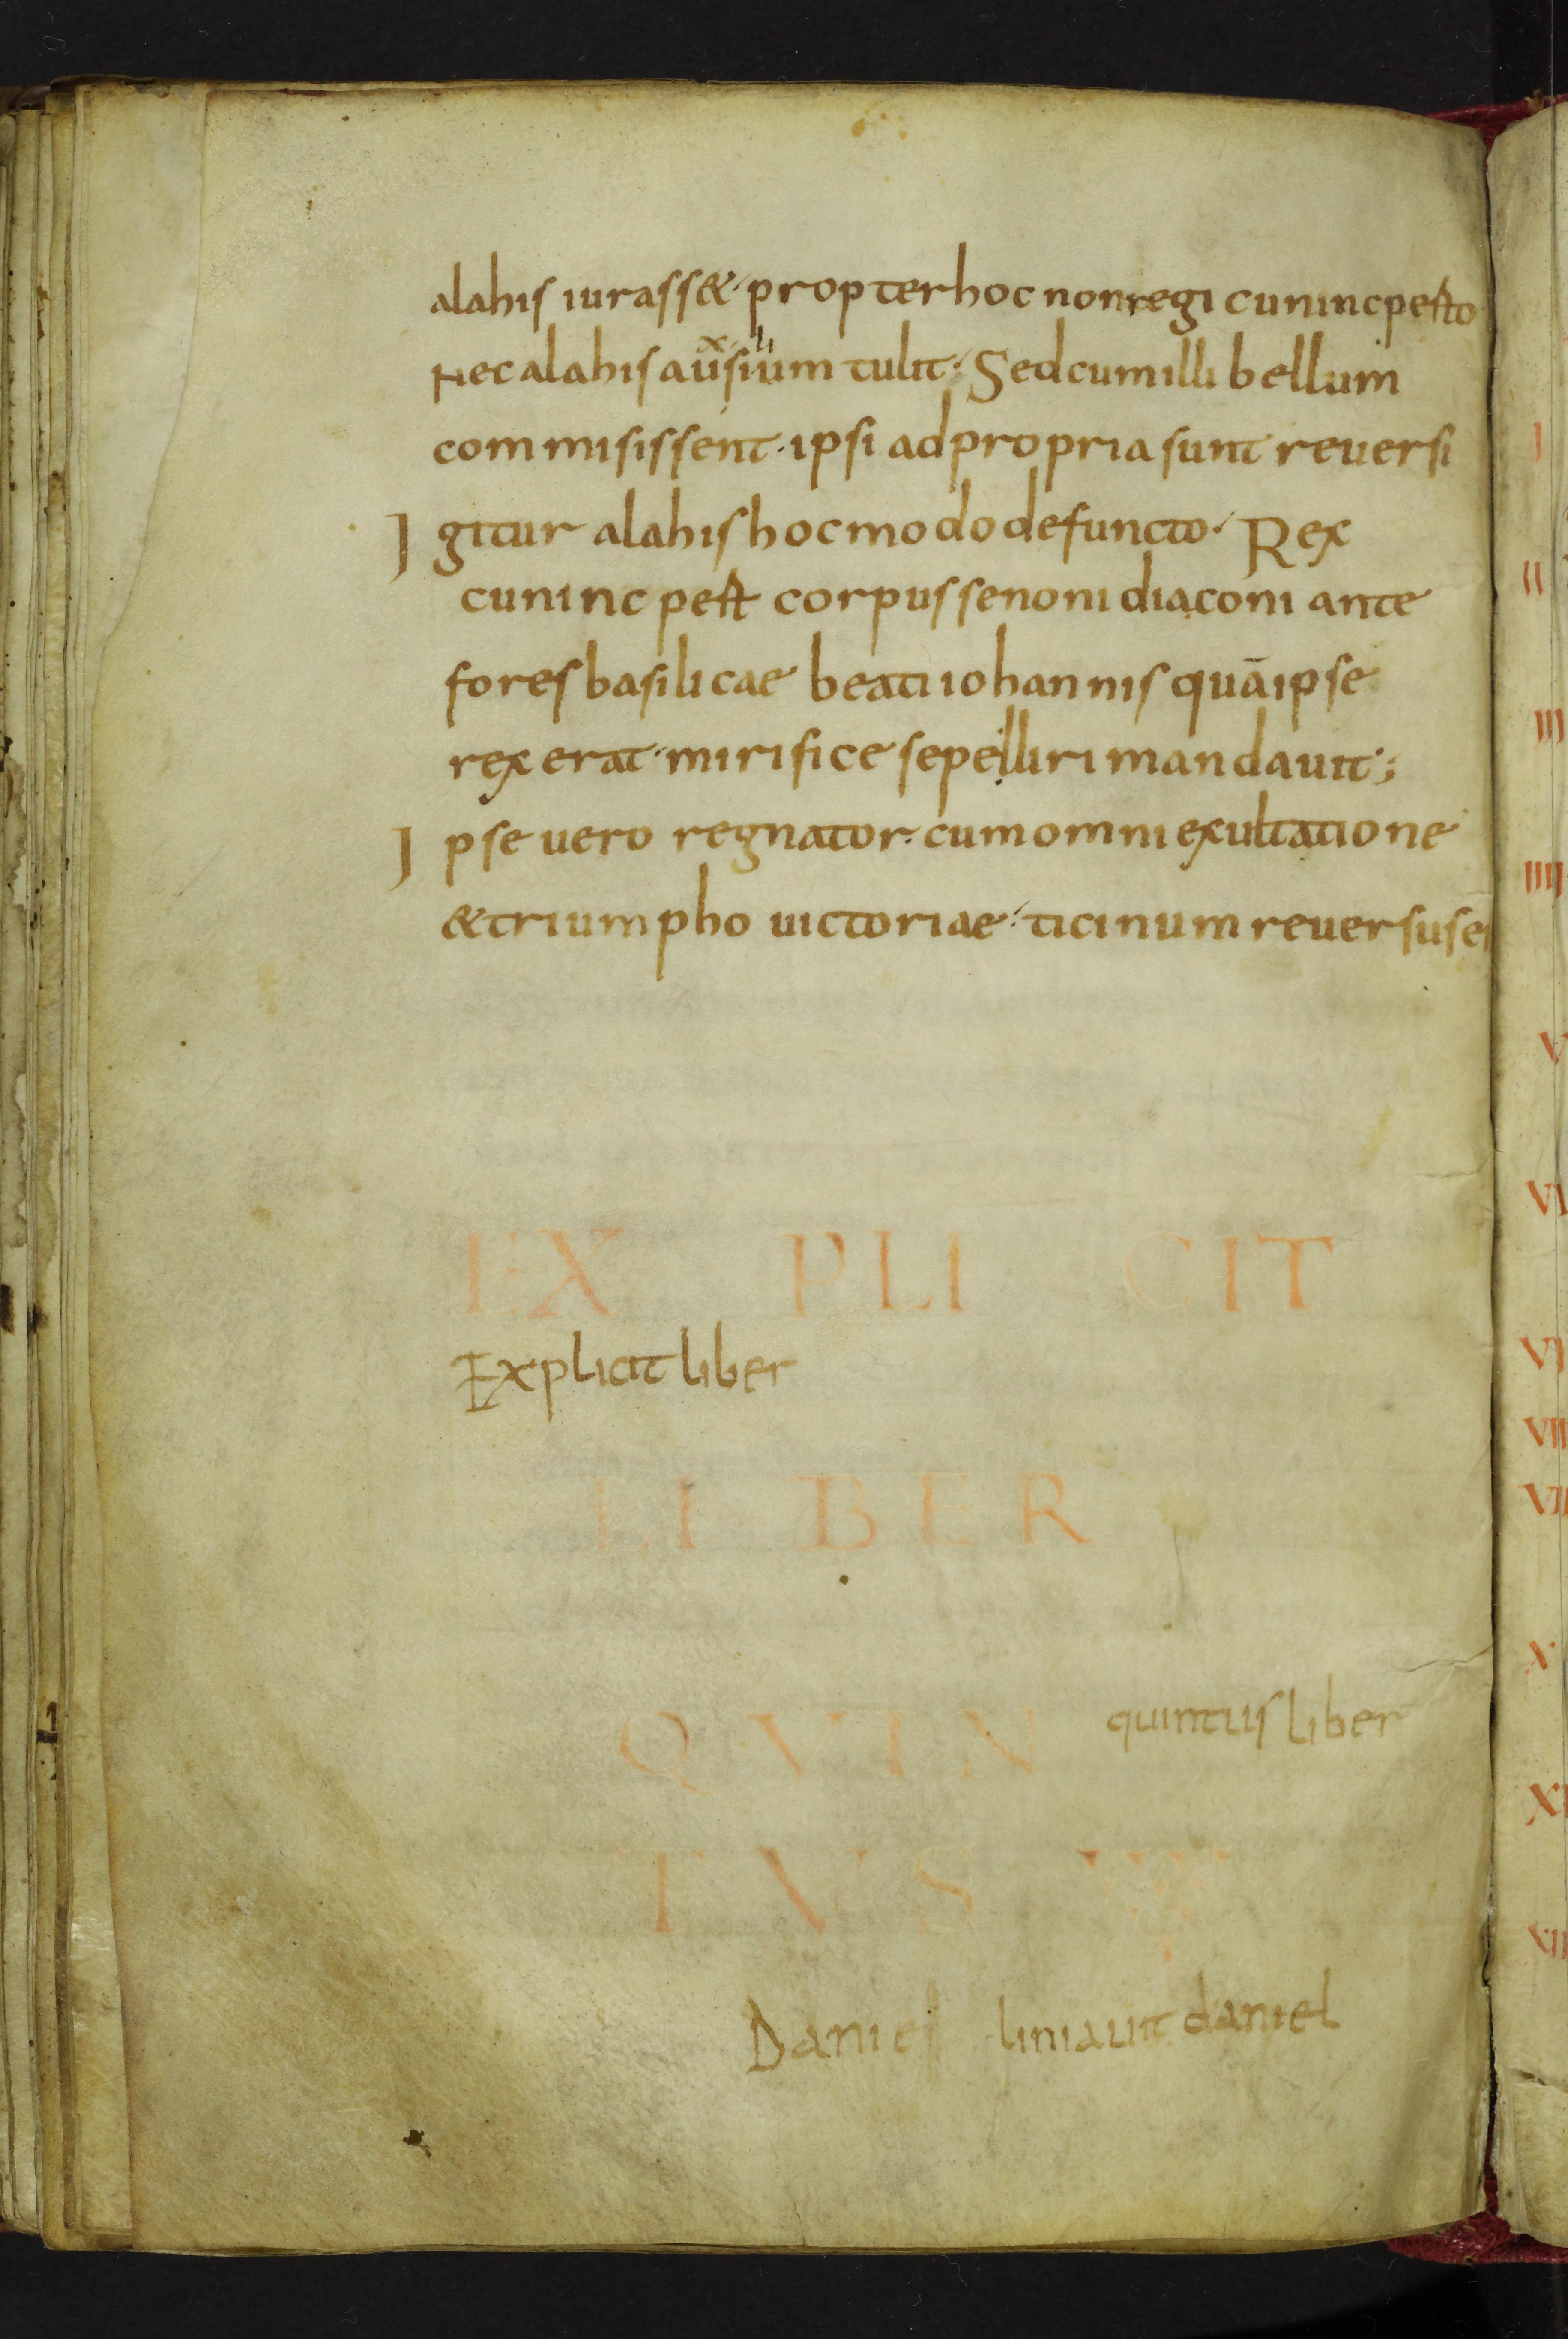 alahis iurass& propter hoc non regi cunincpesto
Nec alahis ausilium tulit. Sed cum illi bellum
commisissent. ipsi ad propria sunt reuersi
Igitur alahis hoc modo defuncto. Rex
cunincpest corpus senoni diaconi ante
fores basilicae beati iohannis quā ipse
rexerat. mirifice sepelliri mandauit;
Ipse uero regnator. cum omni exultatione
& triumpho uictoriae. ticinum reuersus e
EX PLI CIT
Explicit liber
LI BER
QVIN quintus liber
TVS
Daniel liniauit daniel
I
II
III
IIII
V
VI
VI
VII
VII
X
XI
XII